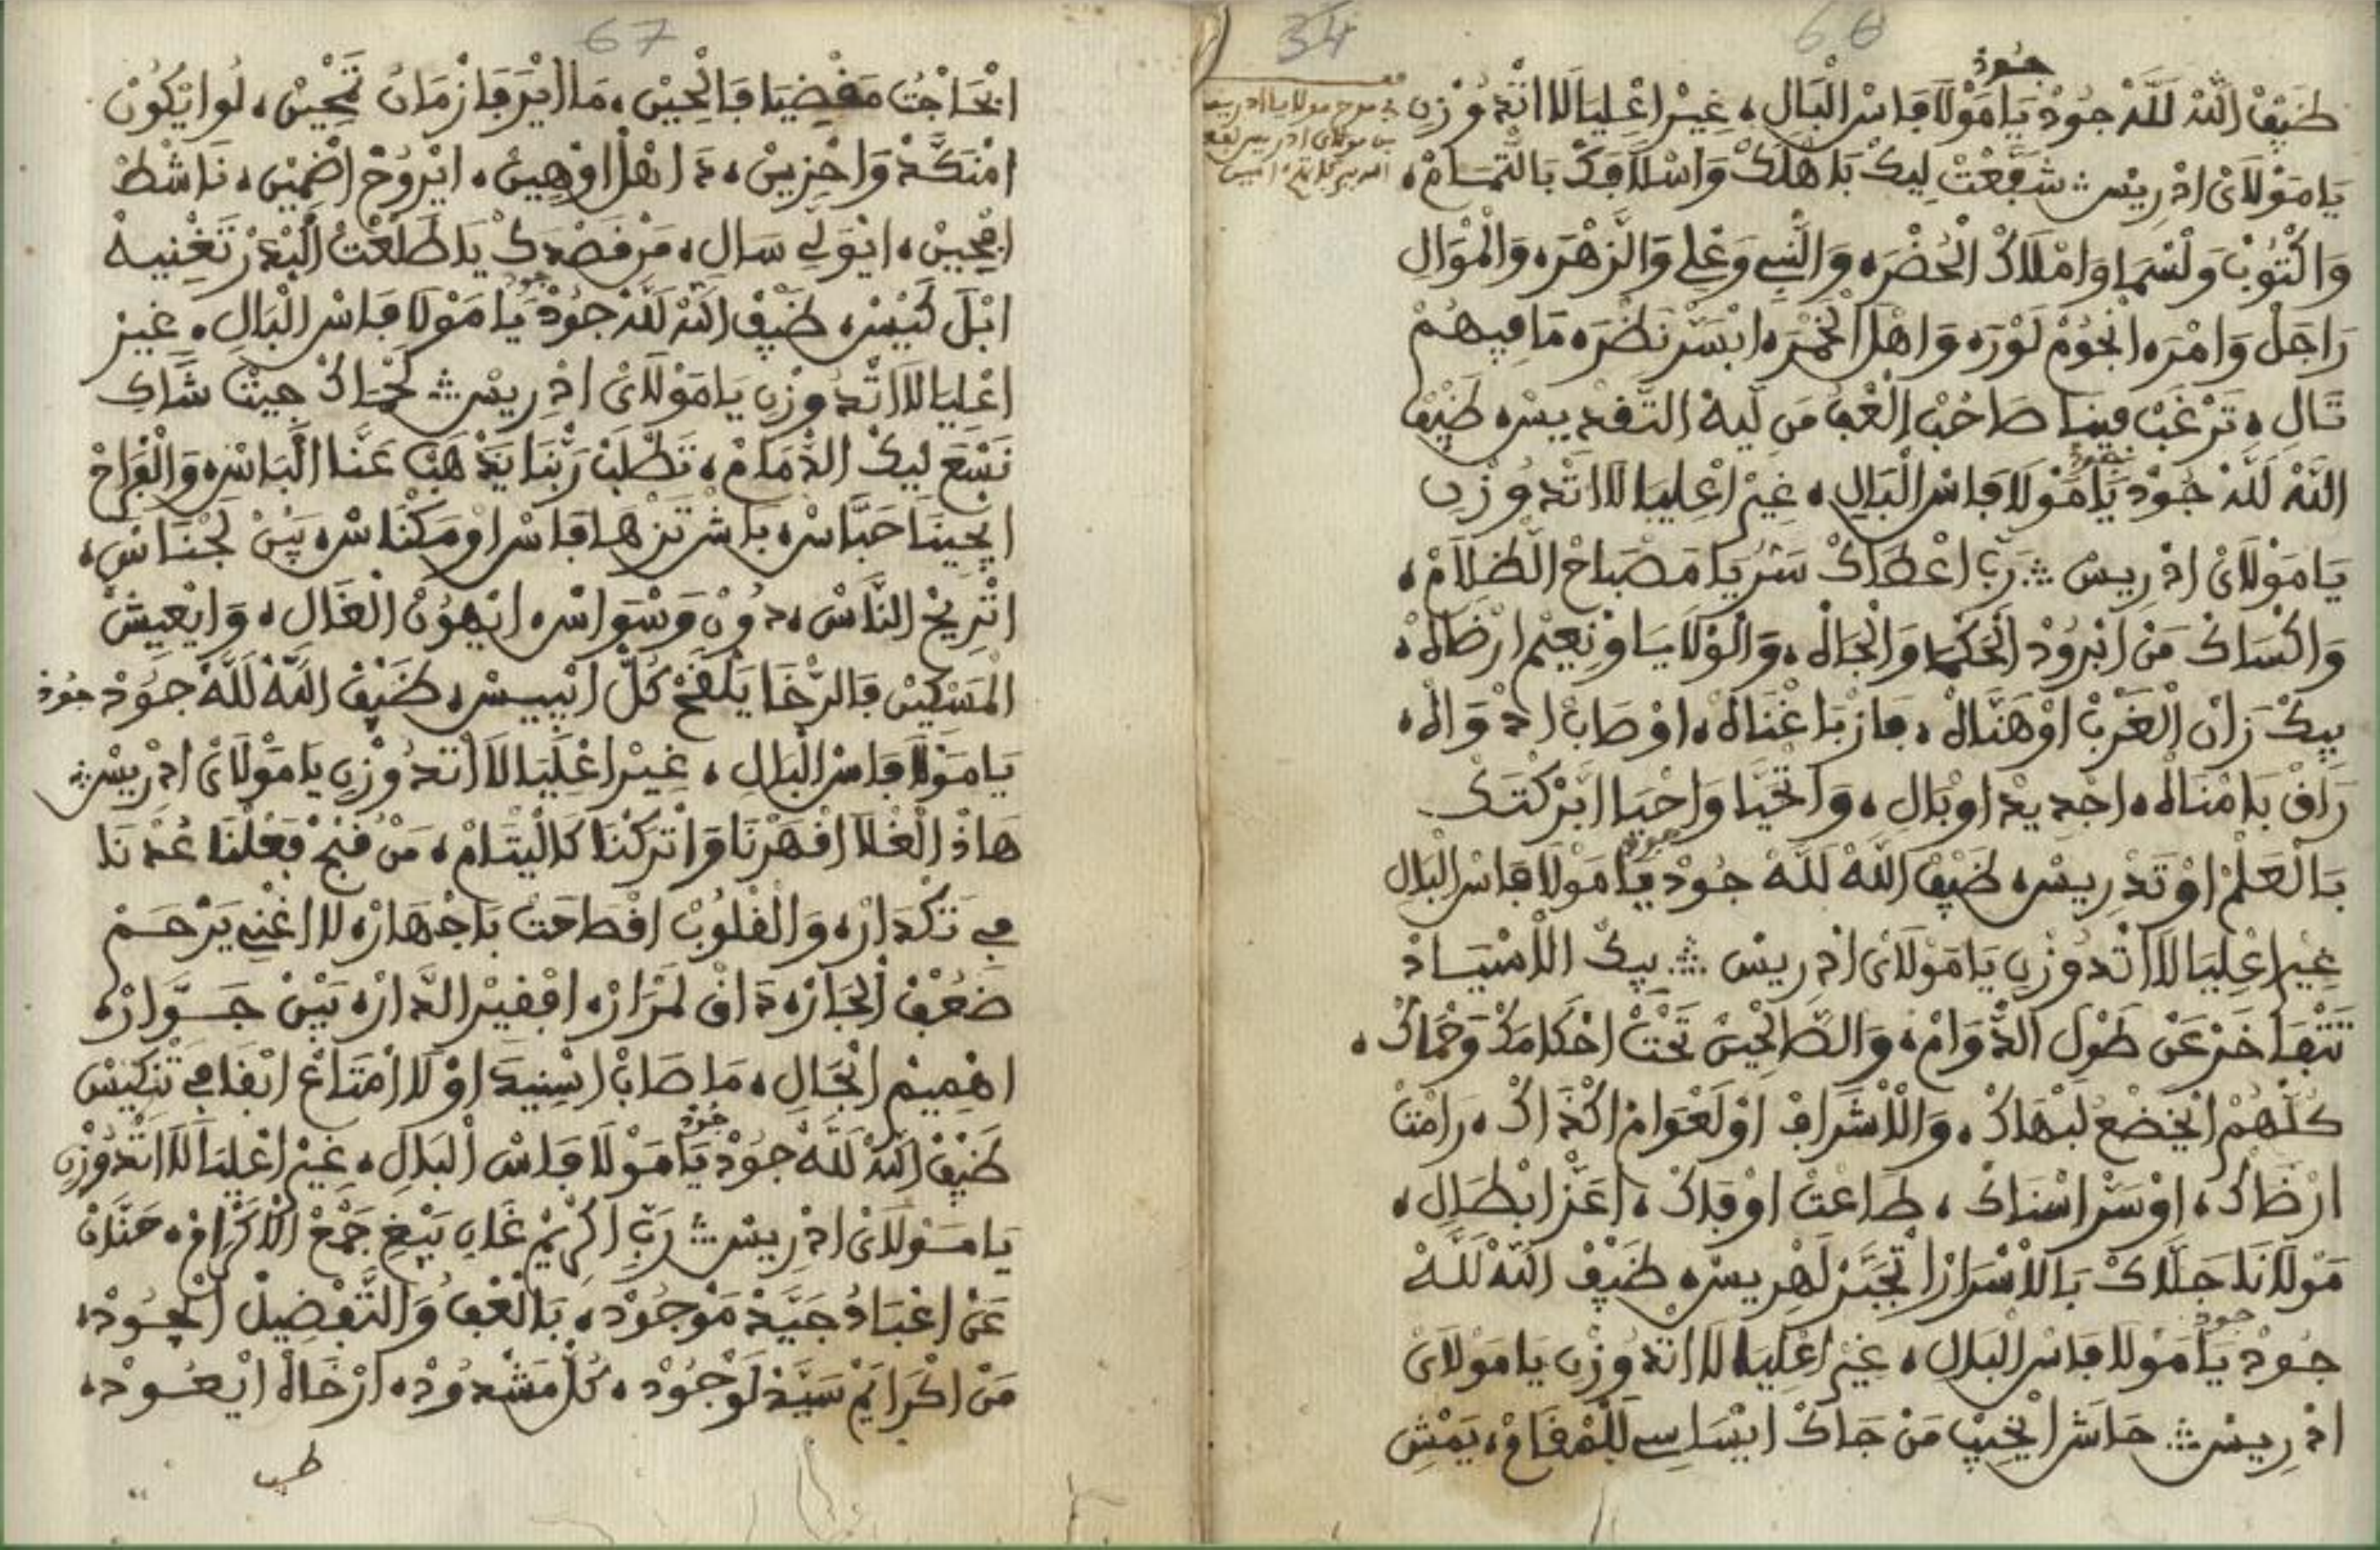 66
34
جود
ضيف الله لله جود يا مولا فاس البال، غير اعليا لا اتدوزن
في مدح مولانا ادريس
بن مولاي ادريس نفع
الله ببركاته امين
يا مولاي ادريس شفعت ليك باهلك واسلافك بالتمام،
والكتوب ولسما واملاك الحضره والنبي وعلي والزهره والموال
راجل وامره انجوم لوره واهل الخمره ابسر نظره ما فيهم
تال، ترغب فينا صاحب العف من ليه التقديس، ضيف
الله لله جود يا مولا فاس البال، غير اعليا لا اتدوزن
جود
يا مولاي ادريس رب اعطاك سر يا مصباح الظلام،
واكساك من ابرود الحكما والجاله، والولايا ونعيم ارضاله،
بيك زان الغرب اوهناله، فاز باغناله، اوصاب ادواله،
راف بامناله، اجديد اوبال، واتحيا واحيا ابركتك
بالعلم اوتدريس، ضيف الله لله جود يا مولا فاس البال
جود
غير اعليا لا اتدوزن يا مولاي ادريس بيك الاسياد
تتفاخر عن طول الدوام، والصالحين تحت احكامك وحماك،
كلهم ايخضع لبهاك، والاشراف اولعوام اكذاك، رامت
ارضاك، اوسر اسناك، طاعت اوفاك، اعز ابطال،
مولانا حلاك بالاسرار اتجبر لهريس، ضيف الله لله
جود يا مولا فاس البال، غير اعليا لا اتدوزن يا مولاي
جود
ادريس حاشا ايخيب من جاك ايساسي للمقام، يمش
67
الحاجت مقضيا فالحين، ما ايرفا زمان تحين، لوا يكون
امنكد واحزين، دا نفل اوهين، ايروح اضمين، ناشط
امحين، ايولي سال، من قصدك يا طلعت البدر تغنيه
ابل كيس، ضيف الله لله جود يا مولا فاس البال، غير
جود
اعليا لا اتدوزن يا مولاي ادريس لحماك جيت شاك
نسع ليك الذمام، تطلب ربنا يذهب عنا الباس، والفراح
ايجينا حباس، باش تزها فاس اومكناس، بين لجناس،
اتريح الناس، دون وسواس، ايهون الغال، وايعيش
المسكين فالرخا يلقح كل ايبيس، ضيف الله لله جود جود
يا مولا فاس البال، غير اعليا لا اتدوزن يا مولاي ادريس
هاذ الغلا اقهرنا واتركنا كاليتام، من قبح فعلنا عدنا
في تكدار، والقلوب اقطاحت باجهار، لا اغني يرحم
ضعف الجار، ذاق لمرار، افقير الدار، بين جوار،
اهميم الحال، ما صاب اسنيدا اولا امتاع ابقا في تنكيس
ضيف الله لله جود يا مولا فاس البال، غير اعليا لا اتدوزن
جود
يا مولاي ادريس رب اكريم غان يبغ جمع الاكرام، حنان
عن اعباد جيد موجود، بالعف والتفضيل ايجود،
من اكرايم سيد لوجود، كل مشدود، ارخاله ايعود،
طب